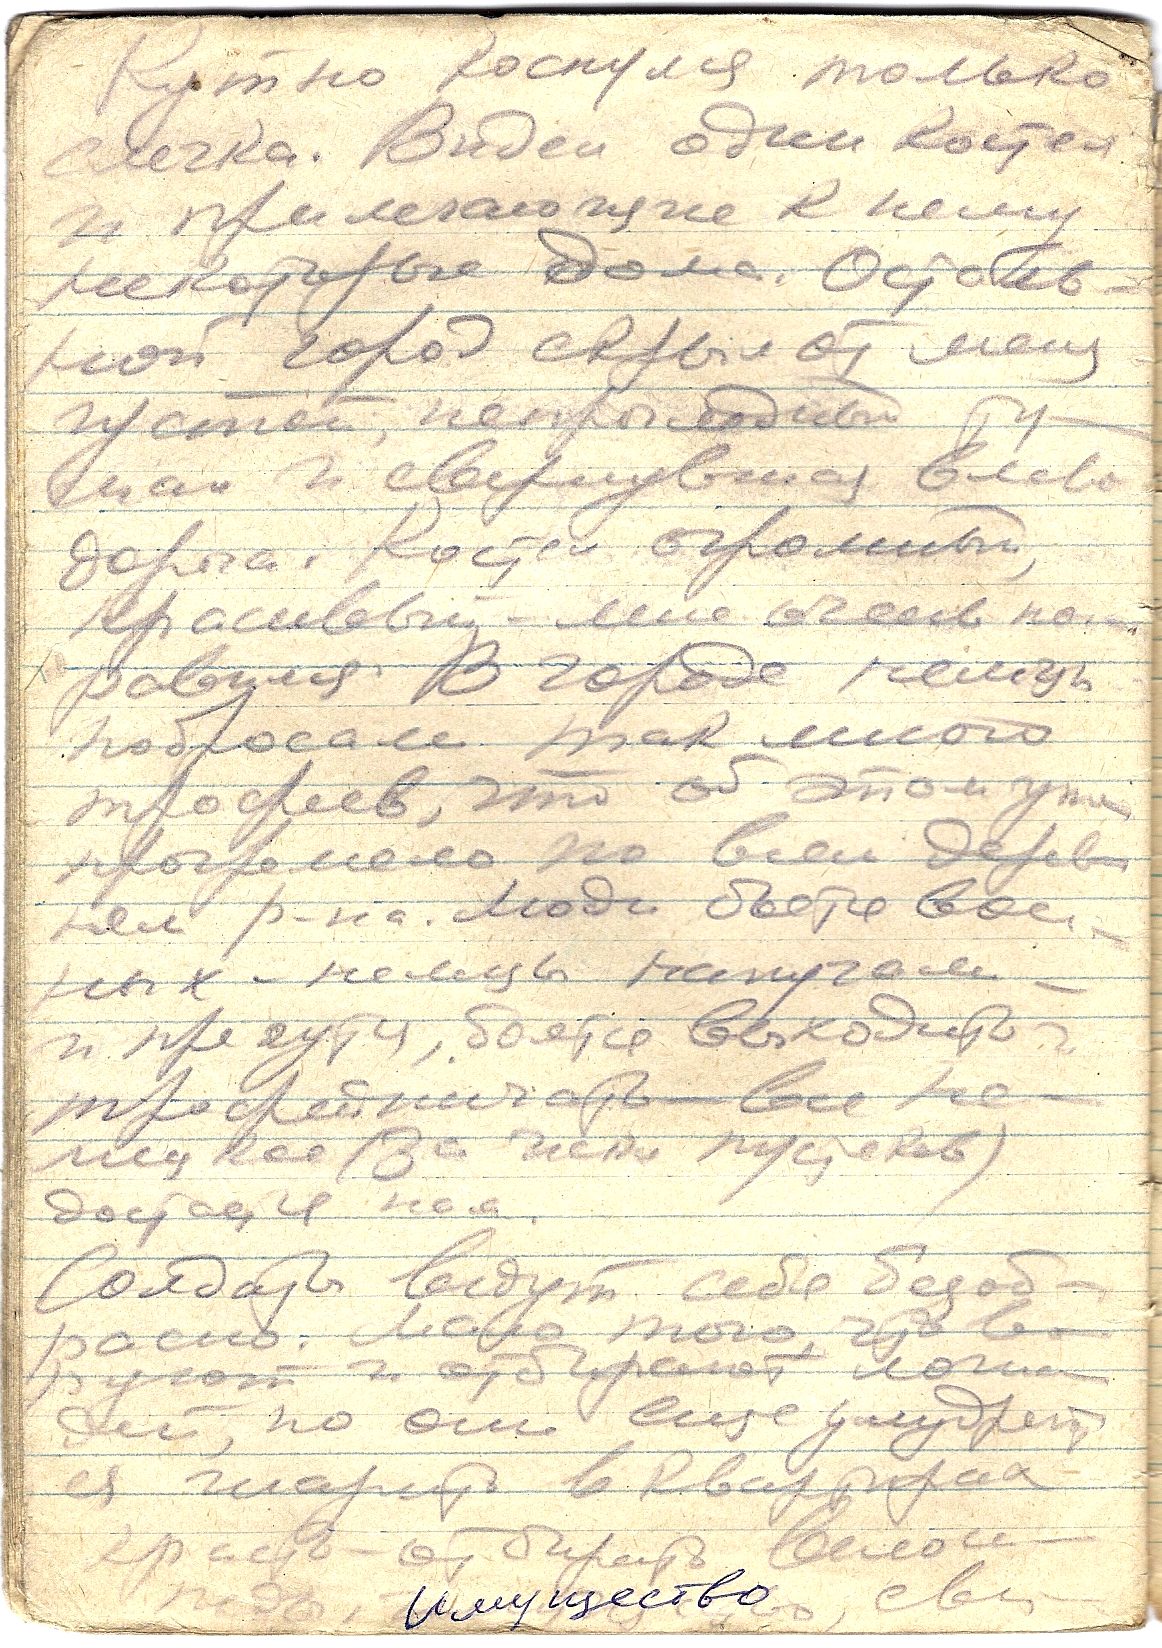 Кутно коснулся только
слегка. Виден один костел
и прилегающие к нему
некоторые дома. Осталь-
ной город скрыл от меня
густой, непроглядный ту-
ман и свернувшая влево
дорога. Костел огромный,
красивый - мне очень по-
равился. В городе немцы
побросали так много
трофеев, что об этом уже
прогремело по всем дерев-
ням р-на. Люди боятся воен-
ных - немцы напугали -
и прячутся, боятся выходить и
трофейничать - все не-
мецкое (за чем пустяков)
достается нам.
Солдаты ведут себя безоб-
разно. Мало того, что во-
руют и отбирают лоша-
дей, но они еще умудряют
ся шарить в квартирах
красть - отбирать велоси-
педы, имущество, сви-